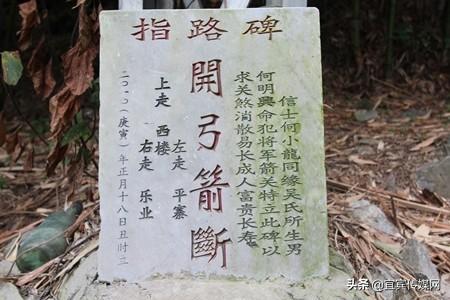 指路碑
信士何小龍同缘吴氏所生男
何明興命犯将军箭关特立此碑以
求关煞消散易长成人富贵长寿
開弓箭斷
左走 平寨
上走 西楼
右走 乐业
二〇一〇(庚寅)年正月十八日丑时
头条 @宜宾传媒网